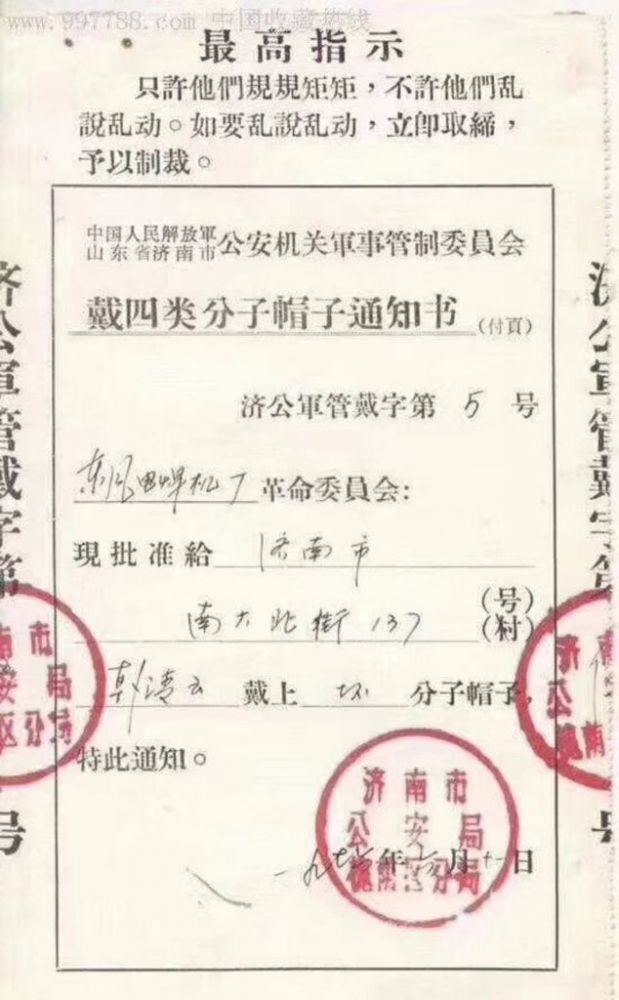 www.997788.com 中国收藏热线
最高指示
只許他們規規矩矩，不許他們乱
說乱动。如要乱說乱动，立卽取締，
予以制裁。
中国人民解放軍
山东省济南市
公安机关軍事管制委員会
戴四类分子帽子通知书 (付頁)
济公軍管戴字第 5 号
东风电焊机厂 革命委員会:
現批准給 济南市
南大北街 137 (号)
(村)
清云 戴上 坏 分子帽子，
特此通知。
济南市
公安局
分局
一九七 年 月十一日
济公軍管戴字第
号
济公軍管戴字第
号
南市
安局
区分局
济南
公